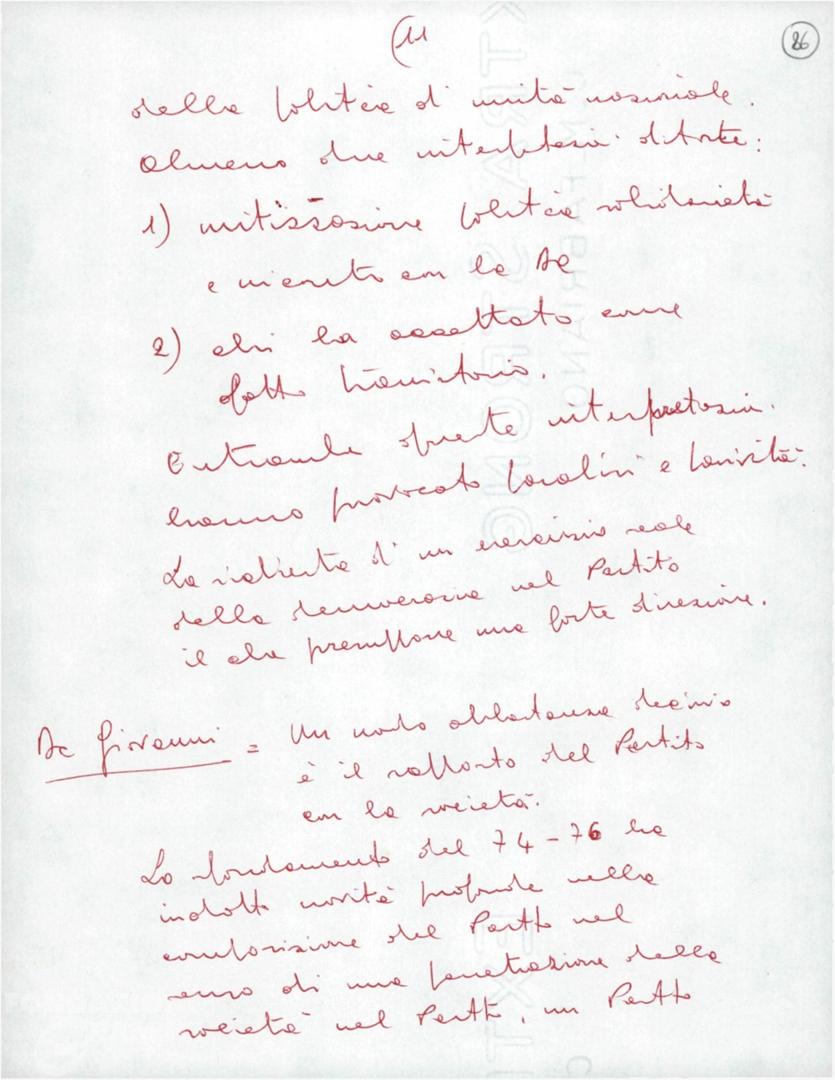 (11
26
della politica d' unità nazionale.
Almeno due interpretazioni distorte:
1) mitizzazione politica solidarietà
e incontro con la DC
2) chi ha accettato come
fatto transitorio.
Entrambe queste interpretazioni
hanno provocato paralisi e passività.
La richiesta d' un esercizio reale
della democrazia nel Partito
il che presuppone una forte direzione.
De Giovanni = Un nodo abbastanza decisivo
è il rapporto del Partito
con la società.
Lo sfondamento del 74-76 ha
indotto novità profonde nella
composizione del Partito nel
senso di una penetrazione della
società nel Partito, un Partito